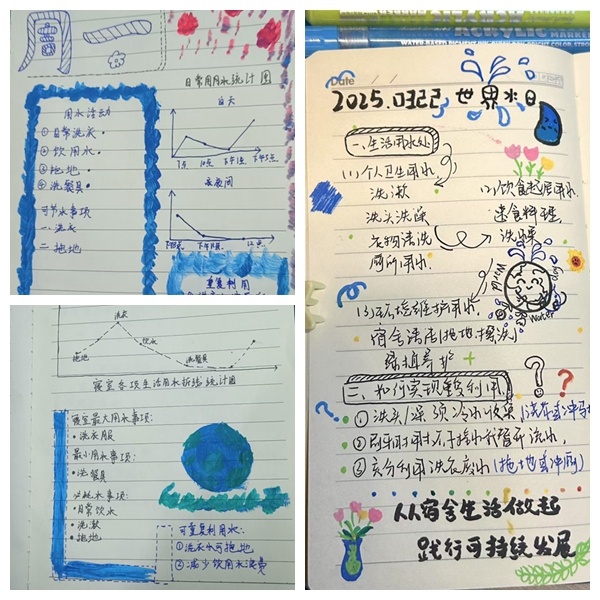 周一
日常用水统计图
用水活动
①日常洗漱
②饮用水
③拖地
④洗餐具
可节水事项
一.洗衣
二.拖地
白天
夜间
12点
重复利用
洗衣
饮水
拖地
洗餐具
寝室各项生活用水折线统计图
寝室最大用水事项:
•洗衣服
最小用水事项:
•洗餐具
必耗水事项:
•日常饮水
•洗漱
•拖地
可重复利用水:
①洗衣水可拖地
②减少饮用水浪费
ACRYLIC MARKER
Date
2025.0322 世界水日
一、生活用水处
(1)个人卫生用水
洗漱
洗头洗澡
衣物清洗
厕所用水
(2)饮食起居用水
速食料理
洗碗
World
Water
day
(3)环境维护用水
宿舍清洁(拖地擦洗)
绿植养护
二、如何实现重复利用
①洗头/澡预冷水收集
②刷牙时用杯子接水不要开流水,
③充分利用洗衣废水(拖地或冲厕)
从宿舍生活做起
践行可持续发展